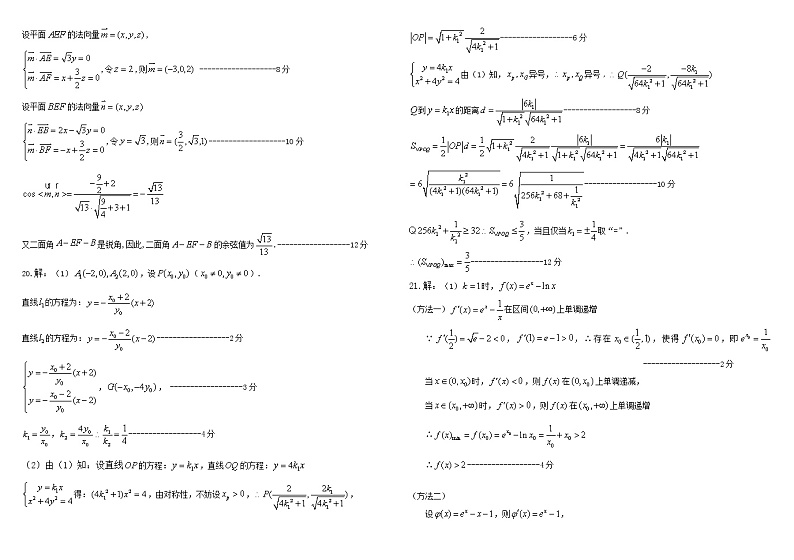 设平面 AEF 的法向量 m⃗ = (x, y, z),
{ m⃗·AE⃗ = √3y = 0
m⃗·AF⃗ = x + 3/2 z = 0 , 令 z = 2, 则 m⃗ = (−3,0,2) -------------------8分
设平面 BEF 的法向量 n⃗ = (x, y, z)
{ n⃗·EB⃗ = 2x − √3y = 0
m⃗·BF⃗ = −x + 3/2 z = 0 , 令 y = √3, 则 n⃗ = (3/2, √3, 1) -------------------10分
cos < m, n > = (−9/2 + 2)/(√13·√(9/4 + 3 + 1)) = −√13/13
又二面角 A − EF − B 是锐角,因此,二面角 A − EF − B 的余弦值为 √13/13. ------------------12分
20.解:(1) A₁(−2,0), A₂(2,0),设 P(x₀, y₀)(x₀ ≠ 0, y₀ ≠ 0).
直线 l₁ 的方程为: y = −(x₀+2)/y₀ (x+2)
直线 l₂ 的方程为: y = −(x₀−2)/y₀ (x−2) ------------------2分
{ y = −(x₀+2)/y₀ (x+2)
y = −(x₀−2)/y₀ (x−2) , Q(−x₀, −4y₀), ------------------3分
k₁ = y₀/x₀, k₂ = 4y₀/x₀ ∴ k₁/k₂ = 1/4 ------------------4分
(2)由(1)知:设直线 OP 的方程: y = k₁x,直线 OQ 的方程: y = 4k₁x
{ y = k₁x
x² + 4y² = 4 得: (4k₁² + 1)x² = 4,由对称性,不妨设 xₚ > 0, ∴ P(2/√(4k₁²+1), 2k₁/√(4k₁²+1)),
|OP| = √(1+k₁²) 2/√(4k₁²+1) ------------------6分
{ y = 4k₁x
x² + 4y² = 4 由(1)知, xₚ, x_Q 异号, ∴ xₚ, x_Q 异号, ∴ Q(−2/√(64k₁²+1), −8k₁/√(64k₁²+1))
Q 到 y = k₁x 的距离 d = |6k₁|/(√(1+k₁²)√(64k₁²+1)) ------------------8分
S_VPOQ = 1/2|OP|d = 1/2 √(1+k₁²) 2/√(4k₁²+1) |6k₁|/(√(1+k₁²)√(64k₁²+1)) = 6|k₁|/(√(4k₁²+1)√(64k₁²+1))
= 6√(k₁²/((4k₁²+1)(64k₁²+1))) = 6√(1/(256k₁²+68+1/k₁²)) ------------------10分
Q 256k₁² + 1/k₁² ≥ 32 ∴ S_VPOQ ≤ 3/5,当且仅当 k₁ = ±1/4 取“=”.
∴ (S_VPOQ)max = 3/5 ------------------12分
21.解:(1) k = 1 时, f(x) = eˣ − ln x
(方法一) f′(x) = eˣ − 1/x 在区间 (0,+∞) 上单调递增
∵ f′(1/2) = √e − 2 < 0, f′(1) = e − 1 > 0, ∴ 存在 x₀ ∈ (1/2, 1),使得 f′(x₀) = 0,即 e^(x₀) = 1/x₀
------------------2分
当 x ∈ (0, x₀) 时, f′(x) < 0,则 f(x) 在 (0, x₀) 上单调递减,
当 x ∈ (x₀, +∞) 时, f′(x) > 0,则 f(x) 在 (x₀, +∞) 上单调递增
∴ f(x)min = f(x₀) = e^(x₀) − ln x₀ = 1/x₀ + x₀ > 2
∴ f(x) > 2 ------------------4分
(方法二)
设 φ(x) = eˣ − x − 1,则 φ′(x) = eˣ − 1,